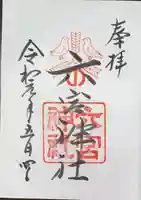 奉拝
六宮神社
令和元年五月四日